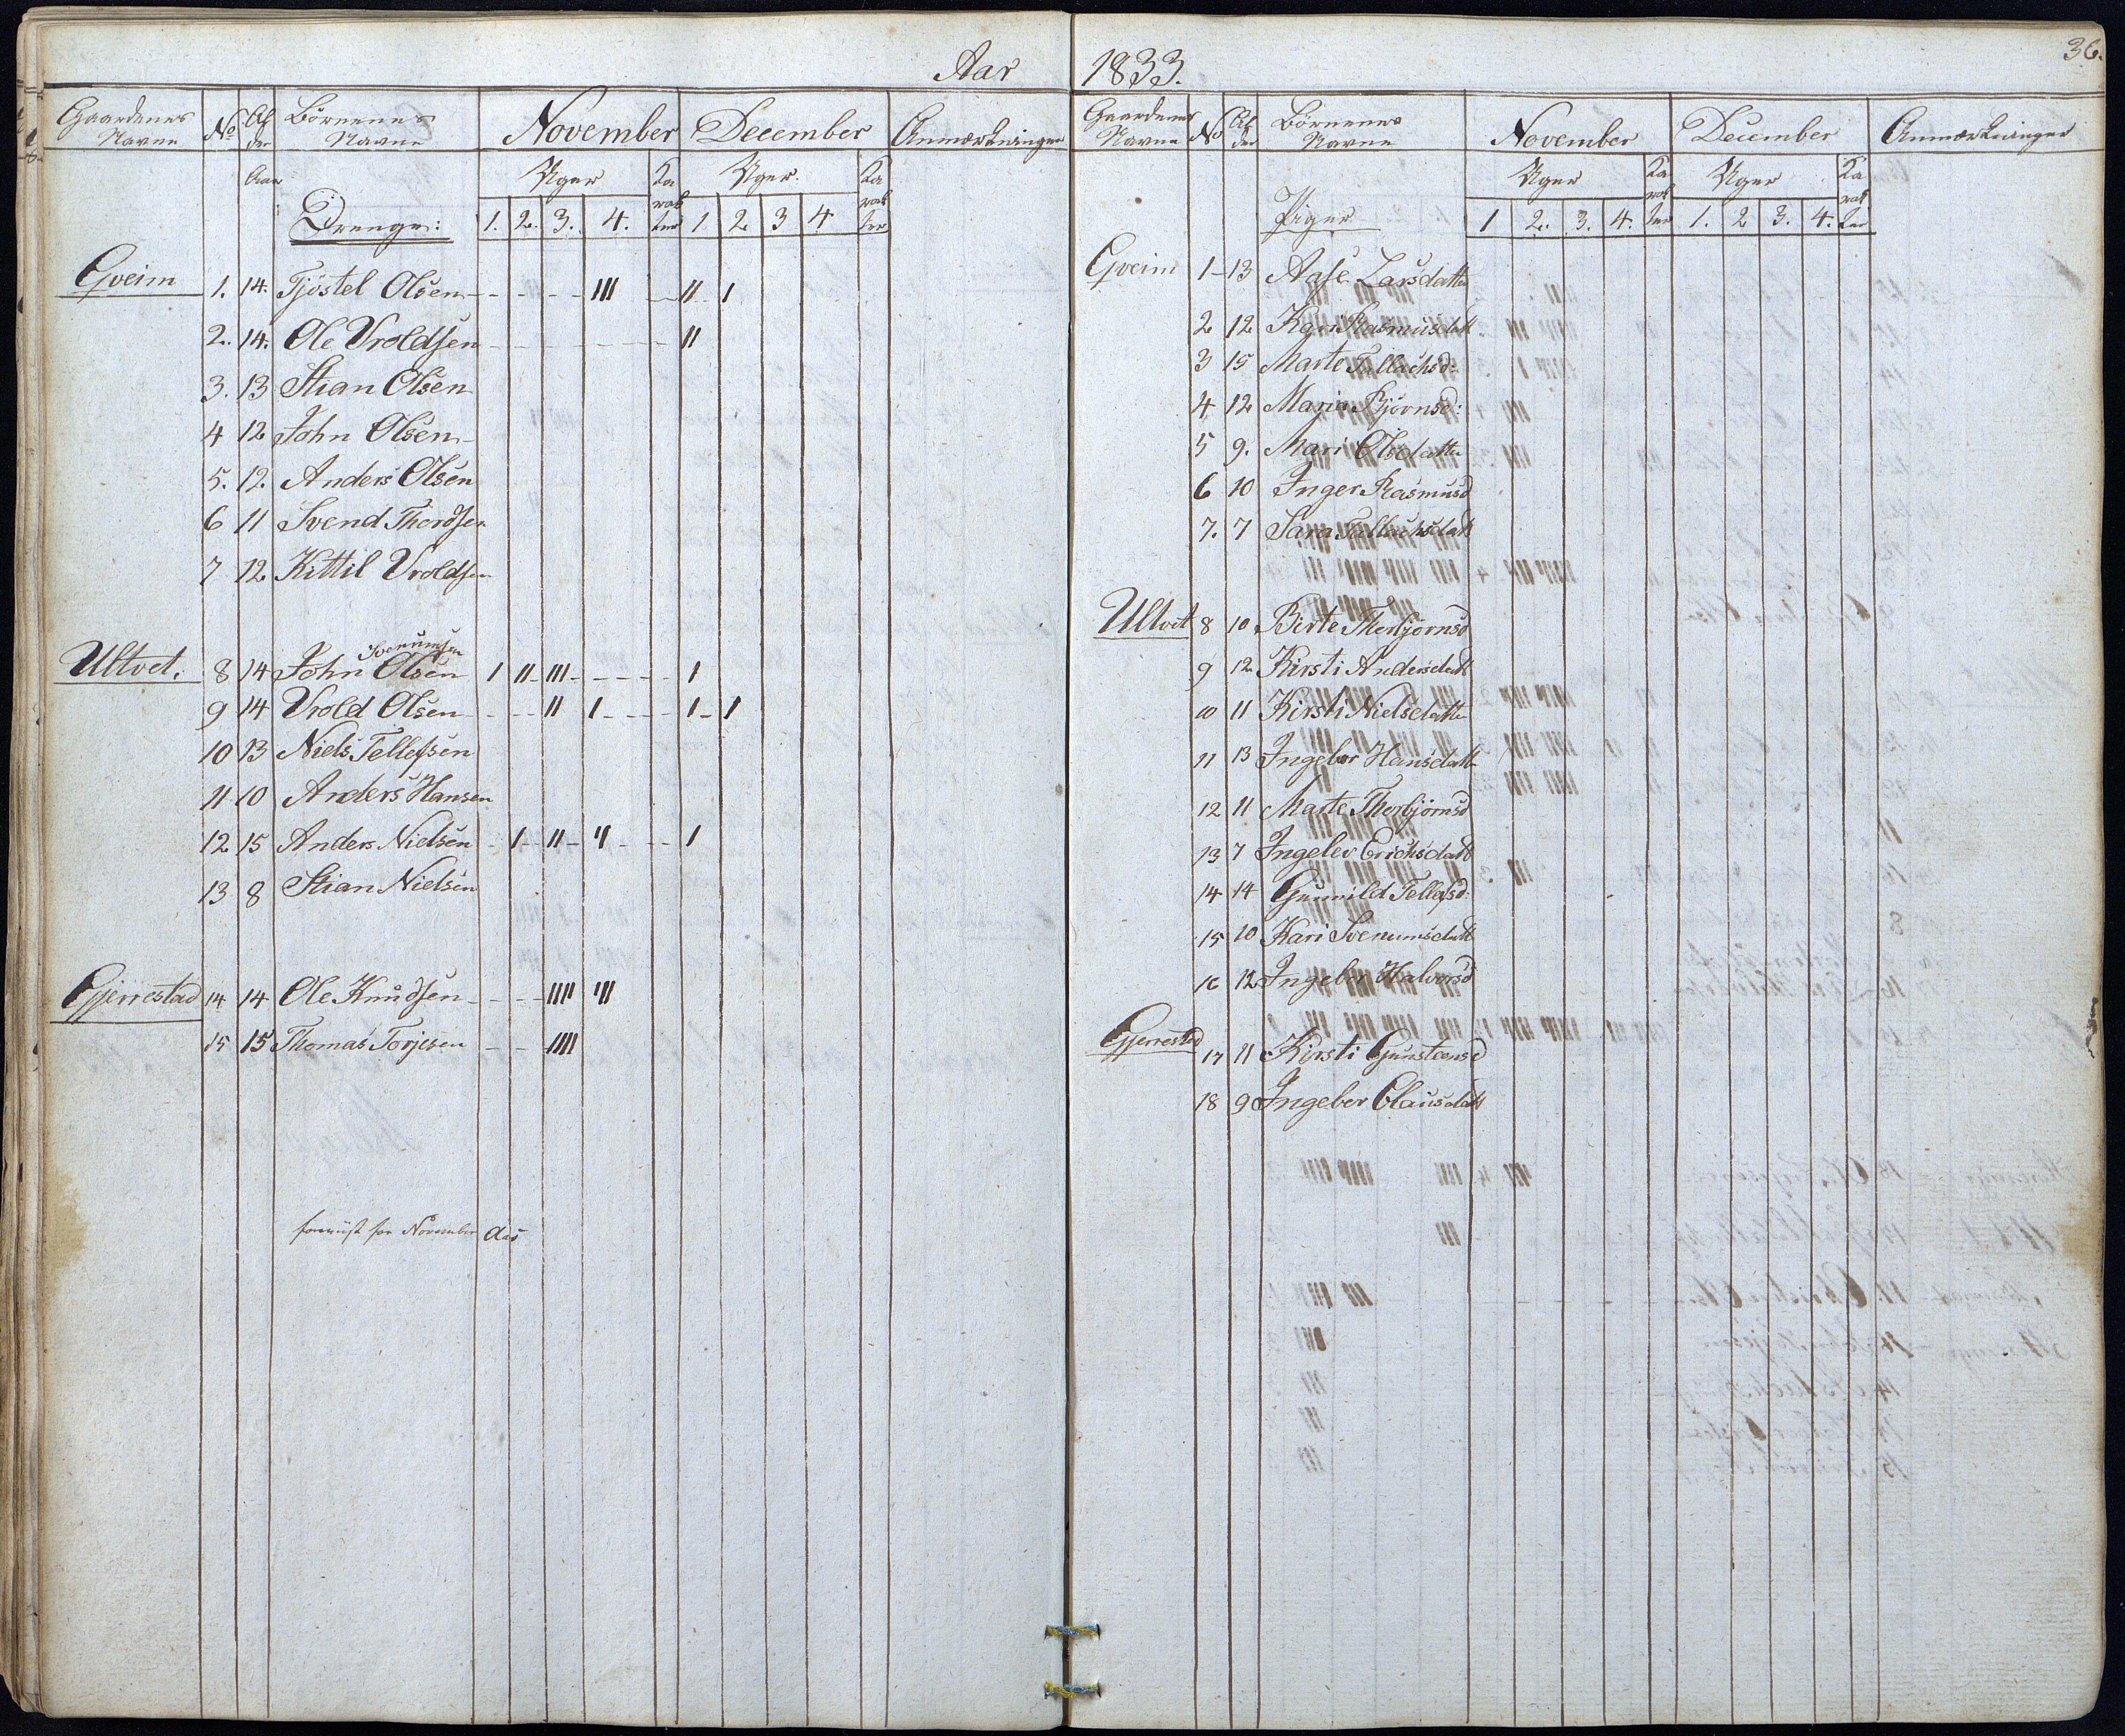 Aar 1833.
36.
Gaardenes Navne No Alder Børnenes Navne November December Anmærkninger
Aar Uger Karakter Uger. Karakter
Drenge: 1. 2. 3. 4. 1 2 3 4
Gveim 1. 14. Tjöstel Olsen III II I
2. 14. Ole Vroldsen II
3. 13 Stian Olsen
4 12 John Olsen
5. 12. Anders Olsen
6 11 Svend Thordsen
7 12 Kittil Vroldsen
Svenumsen
Ultvet. 8 14 John Olsen I II III I
9 14 Vrold Olsen II I I I
10 13 Niels Tellefsen
11 10 Anders Hansen
12 15 Anders Nielsen I II II I
13 8 Stian Nielsen
Gjerrestad 14 14 Ole Knudsen IIII III
15 15 Thomas Torjesen IIII
for November
Gaardenes Navne No Alder Børnenes Navne November December Anmærkninger
Uger Karakter Uger Karakter
Piger 1 2. 3. 4. 1. 2 3. 4.
Gveim 1 13 Aase Larsdatter
2 12 Kari Rasmusdatt
3 15 Marte Tellachsd:
4 12 Maria Bjørnsd:
5 9. Mari Olsdatter
6 10 Inger Rasmusd
7. 7 Sara Tellachsdatt
Ultvet 8 10 Birte Therbjørnsd
9 12 Kirsti Andersdatt
10 11 Kirsti Nielsdatter
11 13 Ingebor Hansdatt
12 11 Marte Therbjörnsd
13 7 Ingelev Erichsdatt
14 14 Gunnild Tellefsd:
15 10 Kari Svenumsdatt
16 12 Ingebor Halvorsd
Gjerrestad 17 11 Kirsti Gunsteensd
18 9 Ingebor Clausdatt